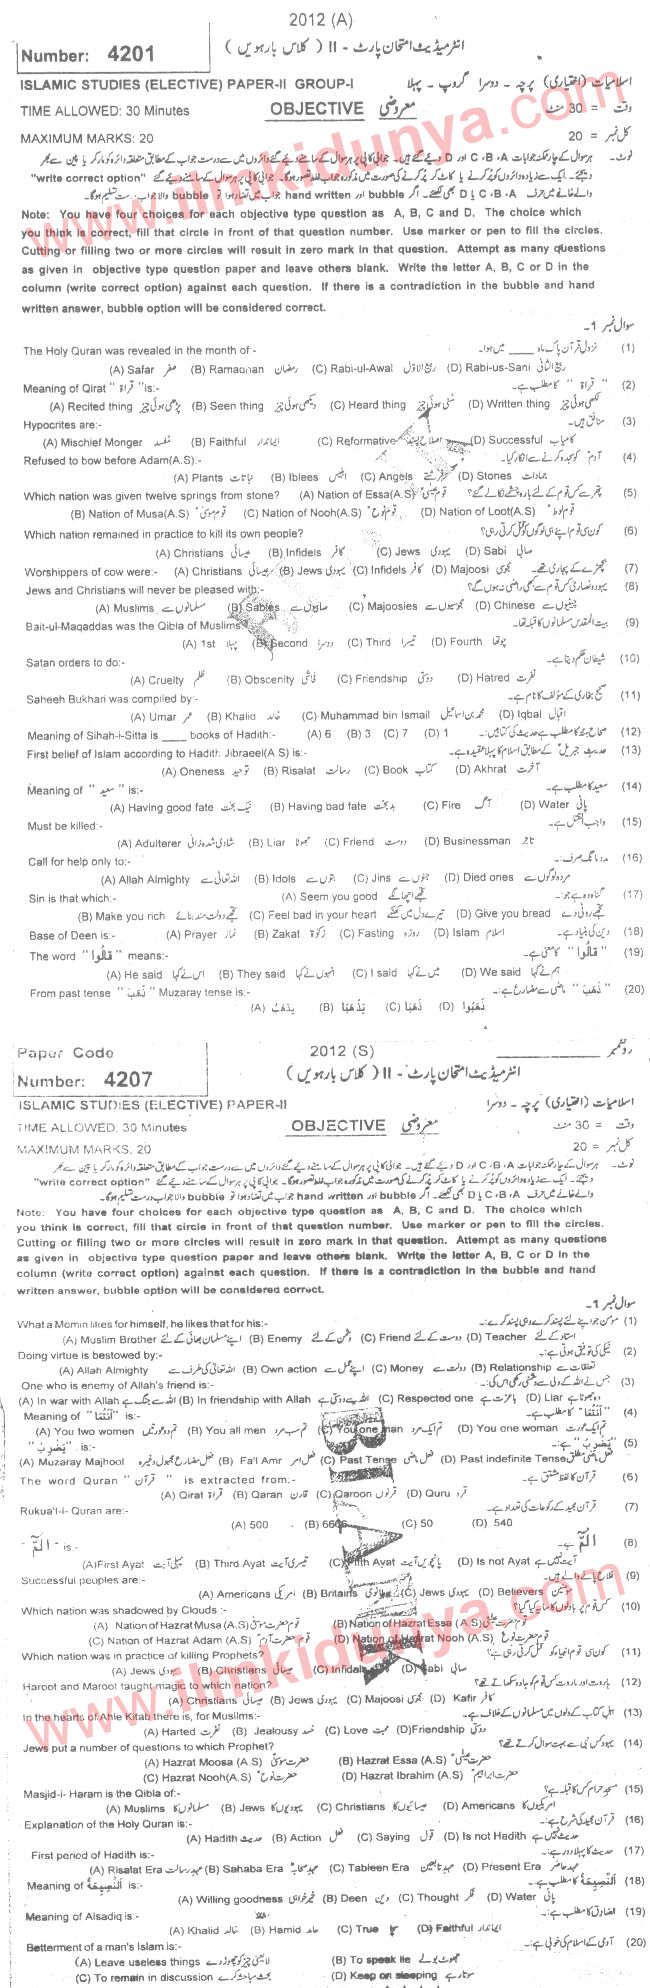 2012 (A)
Number: 4201
انٹرمیڈیٹ امتحان پارٹ - II (کلاس بارہویں)
ISLAMIC STUDIES (ELECTIVE) PAPER-II GROUP-I اسلامیات (اختیاری) پرچہ - دوسرا گروپ - پہلا
TIME ALLOWED: 30 Minutes OBJECTIVE معروضی وقت = 30 منٹ
MAXIMUM MARKS: 20 کل نمبر = 20
Note: You have four choices for each objective type question as A, B, C and D. The choice which
you think is correct, fill that circle in front of that question number. Use marker or pen to fill the circles.
Cutting or filling two or more circles will result in zero mark in that question. Attempt as many questions
as given in objective type question paper and leave others blank. Write the letter A, B, C or D in the
column (write correct option) against each question. If there is a contradiction in the bubble and hand
written answer, bubble option will be considered correct.
سوال نمبر 1-
The Holy Quran was revealed in the month of:- نزول قرآن پاک ماہ ____ میں ہوا۔ (1)
(A) Safar صفر (B) Ramadhan رمضان (C) Rabi-ul-Awal ربیع الاوّل (D) Rabi-us-Sani ربیع الثانی
Meaning of Qirat "قراۃ" is:- "قراۃ" کا مطلب ہے۔ (2)
(A) Recited thing پڑھی ہوئی چیز (B) Seen thing دیکھی ہوئی چیز (C) Heard thing سنی ہوئی چیز (D) Written thing لکھی ہوئی چیز
Hypocrites are:- منافق ہیں۔ (3)
(A) Mischief Monger مفسد (B) Faithful ایماندار (C) Reformative اصلاح پسند (D) Successful کامیاب
Refused to bow before Adam(A.S):- آدمؑ کو سجدہ کرنے سے انکار کیا۔ (4)
(A) Plants نباتات (B) Iblees ابلیس (C) Angels فرشتے (D) Stones جمادات
Which nation was given twelve springs from stone? (A) Nation of Essa(A.S) قوم عیسیٰؑ پتھر سے کس قوم کے لئے بارہ چشمے نکالے گئے؟ (5)
(B) Nation of Musa(A.S) قوم موسیٰؑ (C) Nation of Nooh(A.S) قوم نوحؑ (D) Nation of Loot(A.S) قوم لوطؑ
Which nation remained in practice to kill its own people? کون سی قوم اپنے ہی لوگوں کو قتل کرتی رہی؟ (6)
(A) Christians عیسائی (B) Infidels کافر (C) Jews یہودی (D) Sabi صابی
Worshippers of cow were:- (A) Christians عیسائی (B) Jews یہودی (C) Infidels کافر (D) Majoosi مجوسی بچھڑے کے پجاری تھے۔ (7)
Jews and Christians will never be pleased with:- یہود و نصاریٰ کس قوم سے کبھی راضی نہ ہوں گے؟ (8)
(A) Muslims مسلمانوں سے (B) Sabies صابیوں سے (C) Majoosies مجوسیوں سے (D) Chinese چینیوں سے
Bait-ul-Maqaddas was the Qibla of Muslims بیت المقدس مسلمانوں کا قبلہ تھا۔ (9)
(A) 1st پہلا (B) Second دوسرا (C) Third تیسرا (D) Fourth چوتھا
Satan orders to do:- شیطان حکم دیتا ہے۔ (10)
(A) Cruelty ظلم (B) Obscenity فحاشی (C) Friendship دوستی (D) Hatred نفرت
Saheeh Bukhari was compiled by:- صحیح بخاری کے مؤلف کا نام ہے۔ (11)
(A) Umar عمر (B) Khalid خالد (C) Muhammad bin Ismail محمد بن اسماعیل (D) Iqbal اقبال
Meaning of Sihah-i-Sitta is ____ books of Hadith:- (A) 6 (B) 3 (C) 7 (D) 1 صحاح ستہ کا مطلب ہے حدیث کی کتابیں: (12)
First belief of Islam according to Hadith Jibraeel(A.S) is:- حدیث جبریلؑ کے مطابق اسلام کا پہلا عقیدہ ہے۔ (13)
(A) Oneness توحید (B) Risalat رسالت (C) Book کتاب (D) Akhrat آخرت
Meaning of "سعید" is:- سعید کا مطلب ہے۔ (14)
(A) Having good fate نیک بخت (B) Having bad fate بد بخت (C) Fire آگ (D) Water پانی
Must be killed:- واجب القتل ہے۔ (15)
(A) Adulterer شادی شدہ زانی (B) Liar جھوٹا (C) Friend دوست (D) Businessman تاجر
Call for help only to:- مدد مانگ صرف: (16)
(A) Allah Almighty اللہ تعالیٰ سے (B) Idols بتوں سے (C) Jins جنوں سے (D) Died ones مردہ لوگوں سے
Sin is that which:- (A) Seem you good تجھے اچھا لگے گناہ وہ ہے جو: (17)
(B) Make you rich تجھے دولت مند بنائے (C) Feel bad in your heart تیرے دل میں کھٹکے (D) Give you bread تجھے روٹی دے
Base of Deen is:- (A) Prayer نماز (B) Zakat زکوٰۃ (C) Fasting روزہ (D) Islam اسلام دین کی بنیاد ہے۔ (18)
The word "قَالُوا" means:- "قَالُوا" کا معنی ہے۔ (19)
(A) He said اس نے کہا (B) They said انہوں نے کہا (C) I said میں نے کہا (D) We said ہم نے کہا
From past tense "ذَهَبَ" Muzaray tense is:- "ذَهَبَ" ماضی سے مضارع ہے: (20)
(A) یذهبُ (B) یَذْهَبَا (C) ذَهَبَا (D) ذَهَبُوا
Paper Code 2012 (S) رولنمبر
Number: 4207 انٹرمیڈیٹ امتحان پارٹ - II (کلاس بارہویں)
ISLAMIC STUDIES (ELECTIVE) PAPER-II اسلامیات (اختیاری) پرچہ - دوسرا
TIME ALLOWED: 30 Minutes OBJECTIVE معروضی وقت = 30 منٹ
MAXIMUM MARKS: 20 کل نمبر = 20
Note: You have four choices for each objective type question as A, B, C and D. The choice which
you think is correct, fill that circle in front of that question number. Use marker or pen to fill the circles.
Cutting or filling two or more circles will result in zero mark in that question. Attempt as many questions
as given in objective type question paper and leave others blank. Write the letter A, B, C or D in the
column (write correct option) against each question. If there is a contradiction in the bubble and hand
written answer, bubble option will be considered correct.
سوال نمبر 1-
What a Momin likes for himself, he likes that for his:- مومن جو اپنے لئے پسند کرے وہی پسند کرے: (1)
(A) Muslim Brother اپنے مسلمان بھائی کے لئے (B) Enemy دشمن کے لئے (C) Friend دوست کے لئے (D) Teacher استاد کے لئے
Doing virtue is bestowed by:- نیکی کی توفیق ہوتی ہے: (2)
(A) Allah Almighty اللہ تعالیٰ کی طرف سے (B) Own action اپنے عمل سے (C) Money دولت سے (D) Relationship تعلقات سے
One who is enemy of Allah's friend is:- جس نے اللہ کے ولی سے دشمنی رکھی اس کی: (3)
(A) In war with Allah اللہ سے جنگ ہے (B) In friendship with Allah اللہ سے دوستی ہے (C) Respected one باعزت ہے (D) Liar وہ جھوٹا ہے
Meaning of "اَنْتُمَا" is:- "اَنْتُمَا" کا مطلب ہے۔ (4)
(A) You two women تم دو عورتیں (B) You all men تم سب مرد (C) You one man تم ایک مرد (D) You one woman تم ایک عورت
"یُضْرَبُ" is:- "یُضْرَبُ" ہے: (5)
(A) Muzaray Majhool فعل مضارع مجہول (B) Fa'l Amr فعل امر (C) Past Tense فعل ماضی (D) Past indefinite Tense فعل ماضی مطلق
The word Quran "قرآن" is extracted from:- قرآن کا لفظ مشتق ہے۔ (6)
(A) Qirat قراۃ (B) Qaran قارن (C) Qaroon قرنوں (D) Quru قرد
Rukua't-i- Quran are:- قرآن مجید کے رکوعات کی تعداد ہے۔ (7)
(A) 500 (B) 6666 (C) 50 (D) 540
"الٓمّٓ" is:- الٓمّٓ ہے۔ (8)
(A) First Ayat پہلی آیت (B) Third Ayat تیسری آیت (C) Fifth Ayat پانچویں آیت (D) Is not Ayat آیت نہیں ہے
Successful peoples are:- فلاح پانے والے ہیں۔ (9)
(A) Americans امریکی (B) Britains برطانوی (C) Jews یہودی (D) Believers مومنین
Which nation was shadowed by Clouds :- کس قوم پر بادلوں کا سایہ کیا گیا؟ (10)
(A) Nation of Hazrat Musa (A.S) قوم حضرت موسیٰؑ (B) Nation of Hazrat Essa (A.S) قوم حضرت عیسیٰؑ
(C) Nation of Hazrat Adam (A.S) قوم حضرت آدمؑ (D) Nation of Hazrat Nooh (A.S) قوم حضرت نوحؑ
Which nation was in practice of killing Prophets? کون سی قوم انبیاء کو قتل کرتی رہی ہے؟ (11)
(A) Jews یہودی (B) Christians عیسائی (C) Infidels کافر (D) Sabi صابی
Haroot and Maroot taught magic to which nation? ہاروت اور ماروت کس قوم کو جادو سکھاتے تھے؟ (12)
(A) Christians عیسائی (B) Jews یہودی (C) Majoosi مجوسی (D) Kafir کافر
In the hearts of Ahle Kitab there is, for Muslims:- اہل کتاب کے دلوں میں مسلمانوں کے خلاف ہے۔ (13)
(A) Harted نفرت (B) Jealousy حسد (C) Love محبت (D) Friendship دوستی
Jews put a number of questions to which Prophet? یہود کس نبی سے بہت سوال کرتے تھے؟ (14)
(A) Hazrat Moosa (A.S) حضرت موسیٰؑ (B) Hazrat Essa (A.S) حضرت عیسیٰؑ
(C) Hazrat Nooh(A.S) حضرت نوحؑ (D) Hazrat Ibrahim (A.S) حضرت ابراہیمؑ
Masjid-i- Haram is the Qibla of:- مسجد حرام کس کا قبلہ ہے؟ (15)
(A) Muslims مسلمانوں کا (B) Jews یہودیوں کا (C) Christians عیسائیوں کا (D) Americans امریکیوں کا
Explanation of the Holy Quran is:- قرآن مجید کی شرح ہے: (16)
(A) Hadith حدیث (B) Action فعل (C) Saying قول (D) Is not Hadith حدیث نہیں ہے
First period of Hadith is:- حدیث کا پہلا دور ہے: (17)
(A) Risalat Era عہد رسالت (B) Sahaba Era عہد صحابہؓ (C) Tableen Era عہد تابعین (D) Present Era عہد حاضر
Meaning of اَلنَّصِیْحَۃُ is:- اَلنَّصِیْحَۃُ کا مطلب ہے: (18)
(A) Willing goodness خیر خواہی (B) Deen دین (C) Thought فکر (D) Water پانی
Meaning of Alsadiq is:- الصادق کا مطلب ہے۔ (19)
(A) Khalid خالد (B) Hamid حامد (C) True سچا (D) Faithful ایماندار
Betterment of a man's Islam is:- آدمی کے اسلام کی خوبی ہے: (20)
(A) Leave useless things لایعنی چیز کو چھوڑ دے (B) To speak lie جھوٹ بولے
(C) To remain in discussion بحث مباحثہ کرے (D) Keep on sleeping سوتا رہے
www.ilmkidunya.com
www.ilmkidunya.com